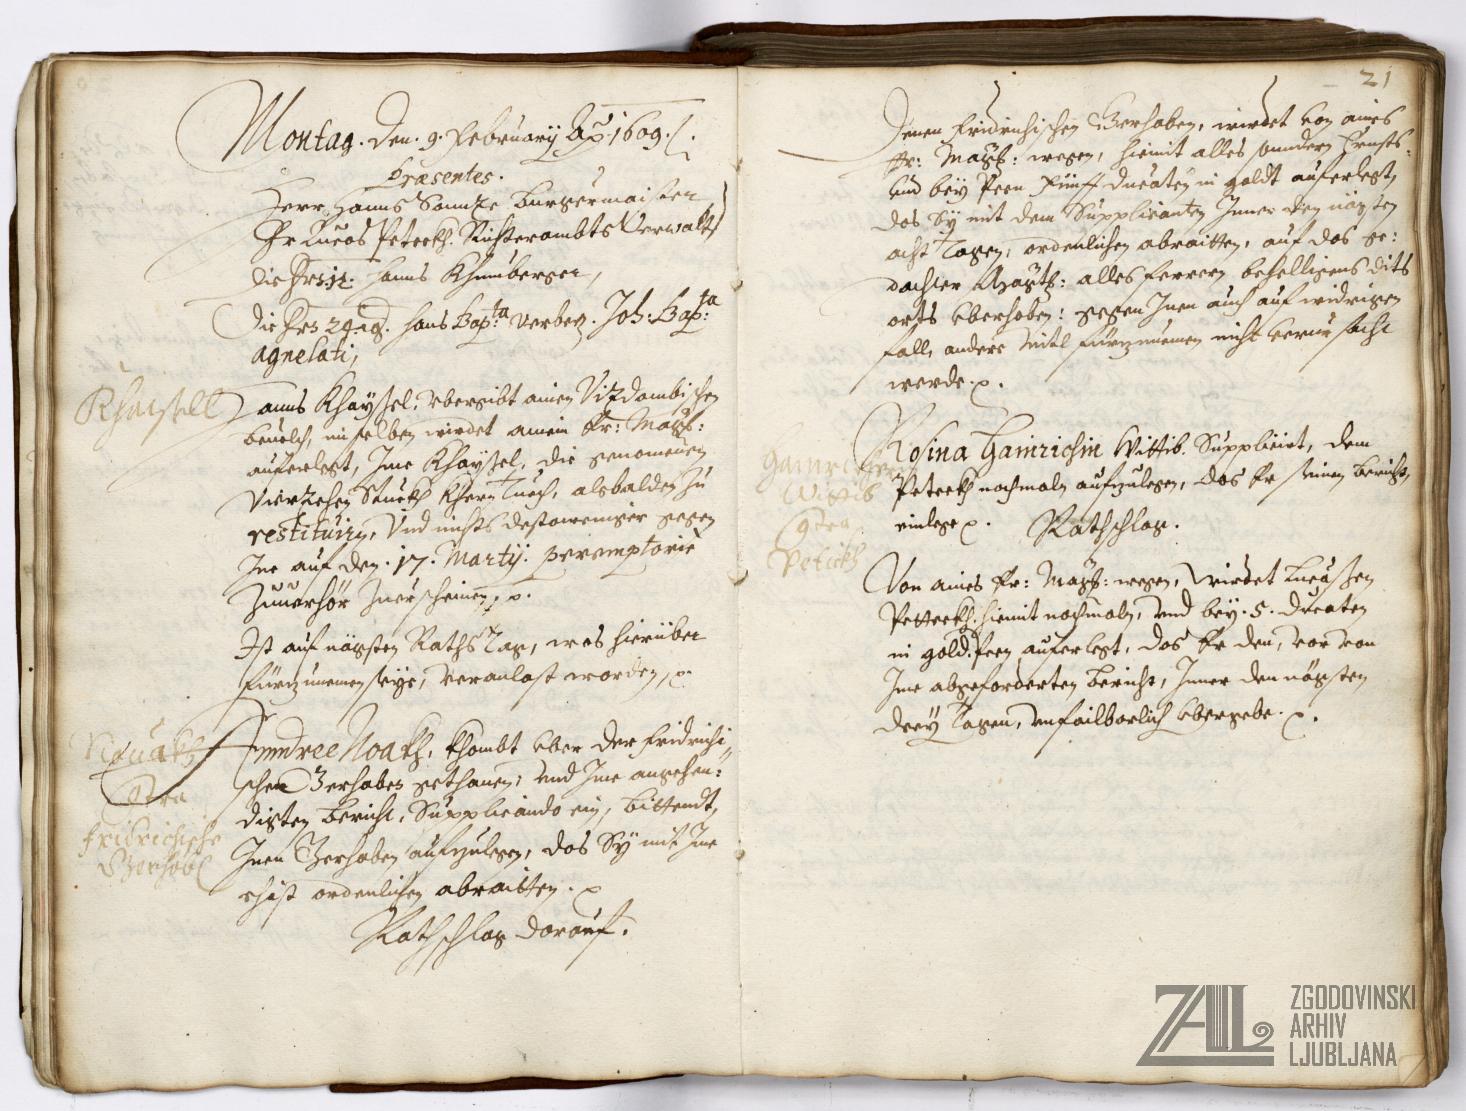 Montag. Den. 9. February Aō 1609.
Præsentes.
Herr Hanns Sonnze Burgermaister
Hr Lucas Peteckh. Richterambts Verwalter
die Hrs: 12. Hanns Khunberger,
Die Hrs 24. ag. Hans Bapta: Verbetz. Joh: Bapta:
agnelati,
Khaisell
Hanns Khayssel, vbergibt ainen Vizdombischen
beuelch, in selben wirdet ainem Er: Magist:
auferlegt, Ime Khayssel, die genomenen
Vierzehen Stuckh Khern Tuech, alsbalden zu
restituirn, Vnd nichts destoweniger gegen
Ime auf den. 17. Martij. peremptorie
Zuuerhör Zuerscheinen, p.
Ist auf nägsten Raths Tag, was hierüber
fürzunemen seye, veranlast worden, p.
Nouakh
Contra
fridrichische
Gerhabe
Anndree Noakh, khombt vber der fridrichi-
schen Gerhaben gethanen, vnd Ime angehen-
digten bericht, Supplicando ein, bittendt,
Inen Gerhaben aufzulegen, das Sy mit Ime
ordenlichen abraitten. p
Rathschlag darauf.
21
Denen fridrichischen Gerhaben, wirdet von aines
Er: Magist: wegen, hiemit alles sondern Ernsts,
vnd bey Peen Fünff ducaten in goldt auferlegt,
das Sy mit dem Supplicanten Inner den nägsten
acht Tagen, ordenlichen abraitten, auf das ge-
dachter Magist: alles ferrern behelligens dits
orts vberhoben: gegen Inen auch auf widrigen
fall, andere Mitl fürzunemen nicht verursacht
werde. p.
Gamrichin
Wittib
Contra
Peteckh
Rosina Gamrichin Wittib. Supplicirt, dem
Peteckh nochmaln aufzulegen, das Er seinen bericht,
einlege p. Rathschlag.
Von aines Er: Magist: wegen, Wirdet Lucassen
Petteckh. hiemit nochmaln, vnd bey. 5. Ducaten
in gold. Peen auferlegt, das Er den, vor von
Ime abgeforderten bericht, Inner den nägsten
drey Tagen, vnfailbarlich vbergebe. p.
ZAL
ZGODOVINSKI
ARHIV
LJUBLJANA